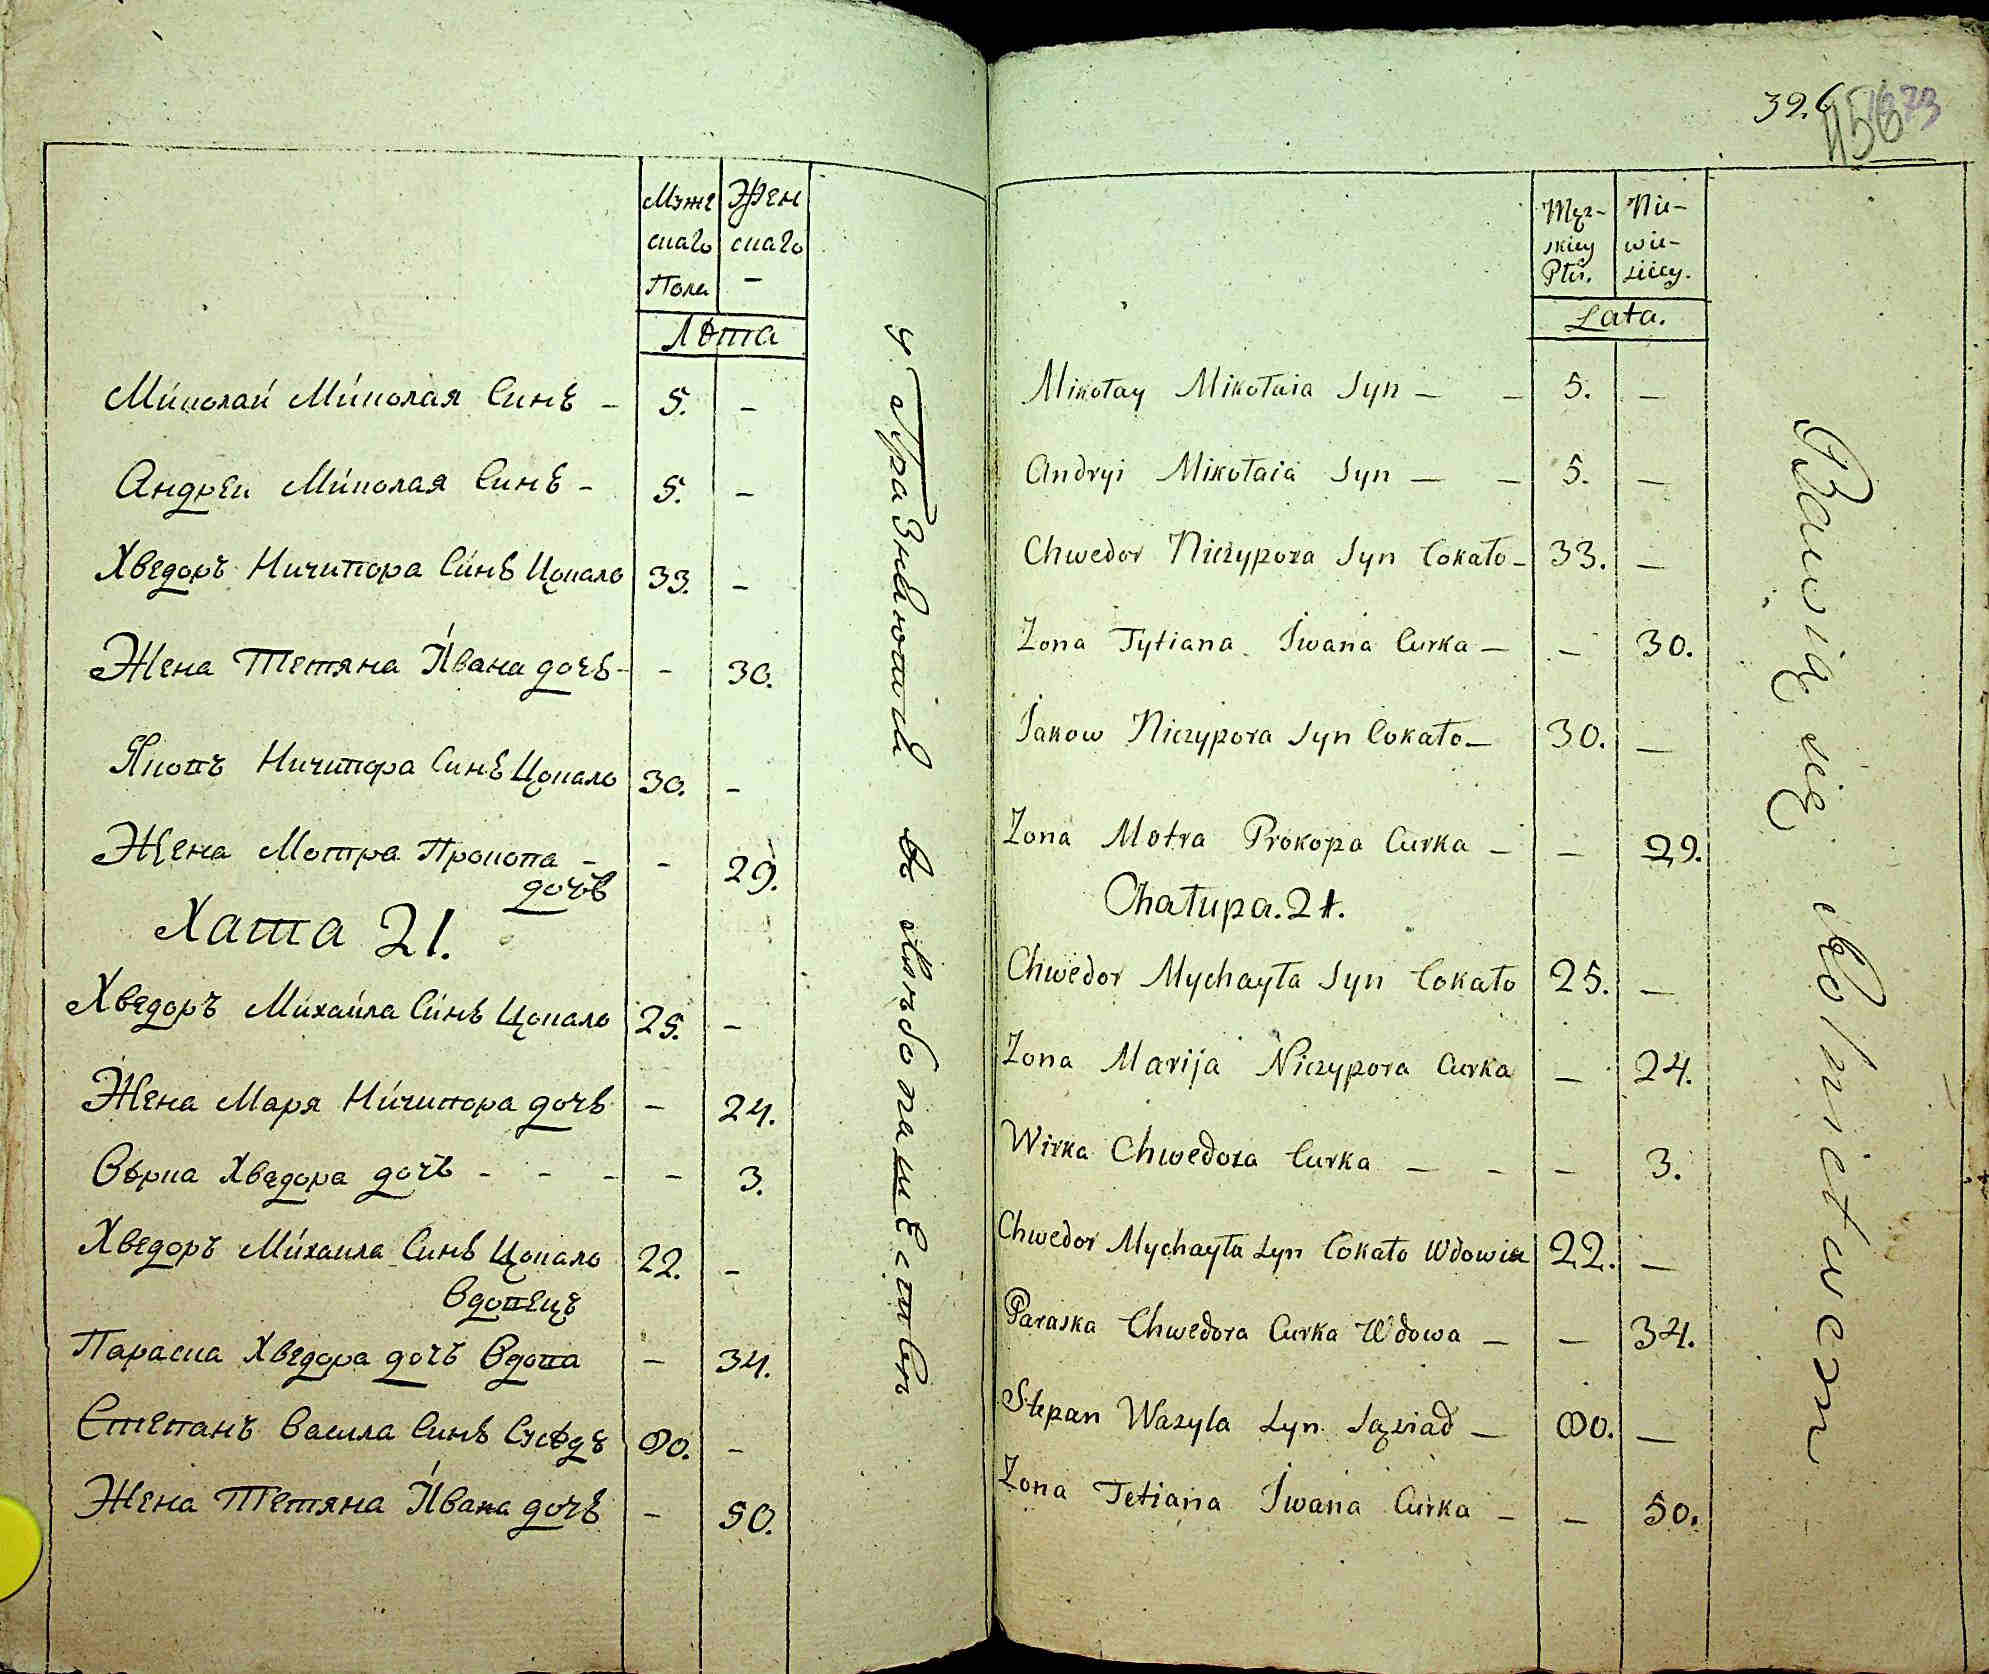 Муже
скаго
Пола
Жен
скаго
—
Лѣта
Миколай Миколая Синъ – 5. –
Андреи Миколая Синъ – 5. –
Хведоръ Ничипора Синъ Цокало 33. –
Жена Тетяна Ивана дочь – – 30.
Яковъ Ничипора Синъ Цокало 30. –
Жена Мотра Прокопа – – 29.
дочь
Хата 21.
Хведоръ Михайла Синъ Цокало 25. –
Жена Маря Ничипора дочь – 24.
Вѣрка Хведора дочь – – – – 3.
Хведоръ Михаила Синъ Цокало 22. –
Вдовецъ
Параска Хведора дочь Вдова – 34.
Степанъ Васила Синъ Сусѣдъ 80. –
Жена Тетяна Ивана дочь – 50.
Упражняются въ хлѣбопашествѣ
39.
156
73
Męz-
skiey
Płci.
Nie-
wie-
sciey.
Lata.
Mikołay Mikołaia Syn – – 5. –
Andryi Mikołaia Syn – – 5. –
Chwedor Niczypora Syn Cokało – 33. –
Zona Tytiana Iwana Curka – – 30.
Iakow Niczypora Syn Cokało – 30. –
Zona Motra Prokopa Curka – – 29.
Chałupa. 21.
Chwedor Mychayła Syn Cokało 25. –
Zona Marija Niczypora Curka – 24.
Wirka Chwedora Curka – – – 3.
Chwedor Mychayła Syn Cokało Wdowia 22. –
Paraska Chwedora Curka Wdowa – – 34.
Stepan Wazyla Syn Sąsiad – 80. –
Zona Tetiana Iwana Curka – – 50.
Bawią się Rolnictwem